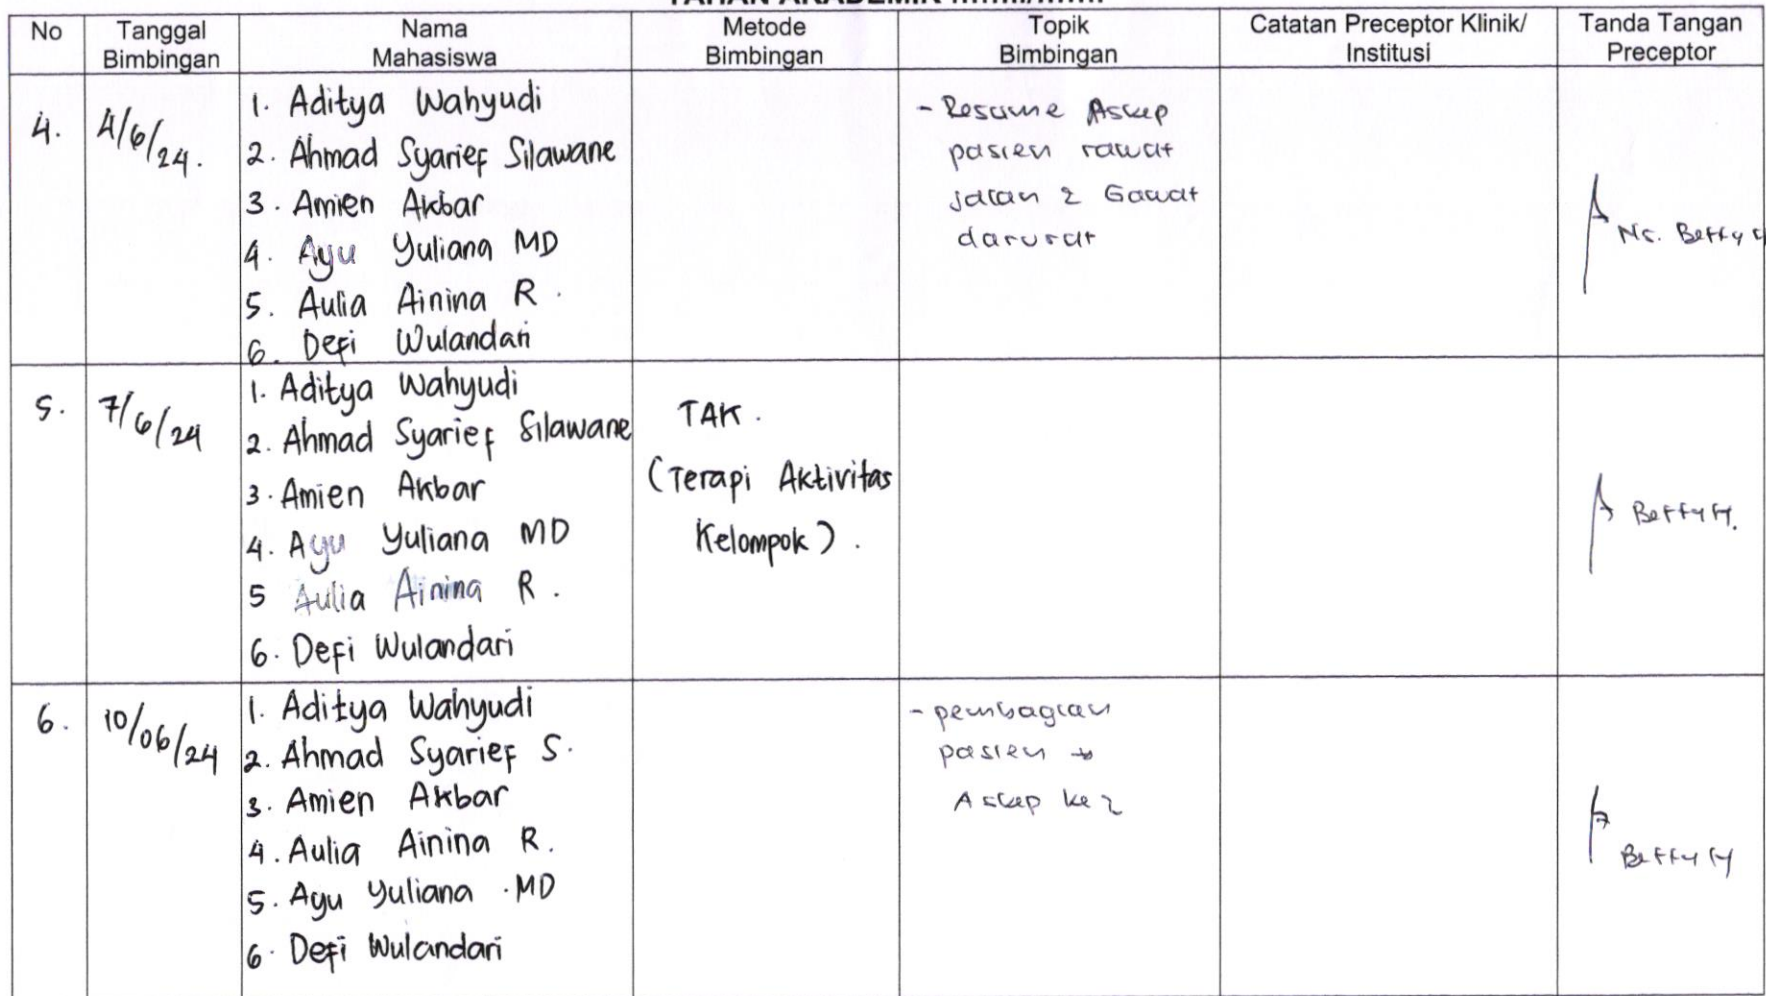 No
Tanggal
Bimbingan
Nama
Mahasiswa
Metode
Bimbingan
Topik
Bimbingan
Catatan Preceptor Klinik/
Institusi
Tanda Tangan
Preceptor
4.
4/6/24.
1. Aditya Wahyudi
2. Ahmad Syarief Silawane
3. Amien Akbar
4. Ayu Yuliana MD
5. Aulia Ainina R.
6. Defi Wulandari
- Resume Askep
pasien rawat
jalan 2 Gawat
darurat
Ns. Betty
5.
7/6/24
1. Aditya Wahyudi
2. Ahmad Syarief Silawane
3. Amien Akbar
4. Ayu Yuliana MD
5 Aulia Ainina R.
6. Defi Wulandari
TAK.
(Terapi Aktivitas
Kelompok).
Betty H.
6.
10/06/24
1. Aditya Wahyudi
2. Ahmad Syarief S.
3. Amien Akbar
4. Aulia Ainina R.
5. Ayu Yuliana .MD
6. Defi Wulandari
- pembagian
pasien →
Askep ke 2
Betty H